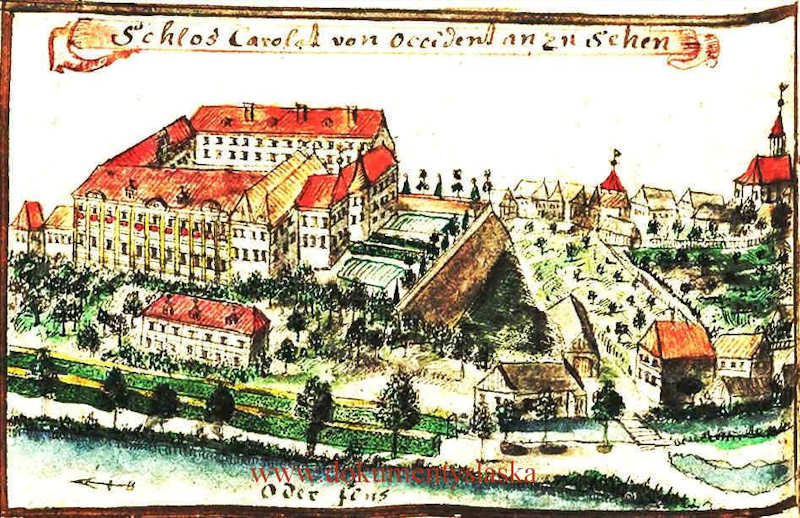 Schlos Carolat von Occident an zu sehen
www.dokumentyslaska
Oder flus